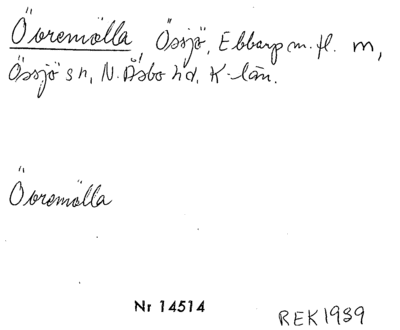 Övremölla, Össjö, Ebbarp m. fl. m,
Össjö sn, N. Åsbo hd, K-län.
Övremölla
Nr 14514
REK 1939